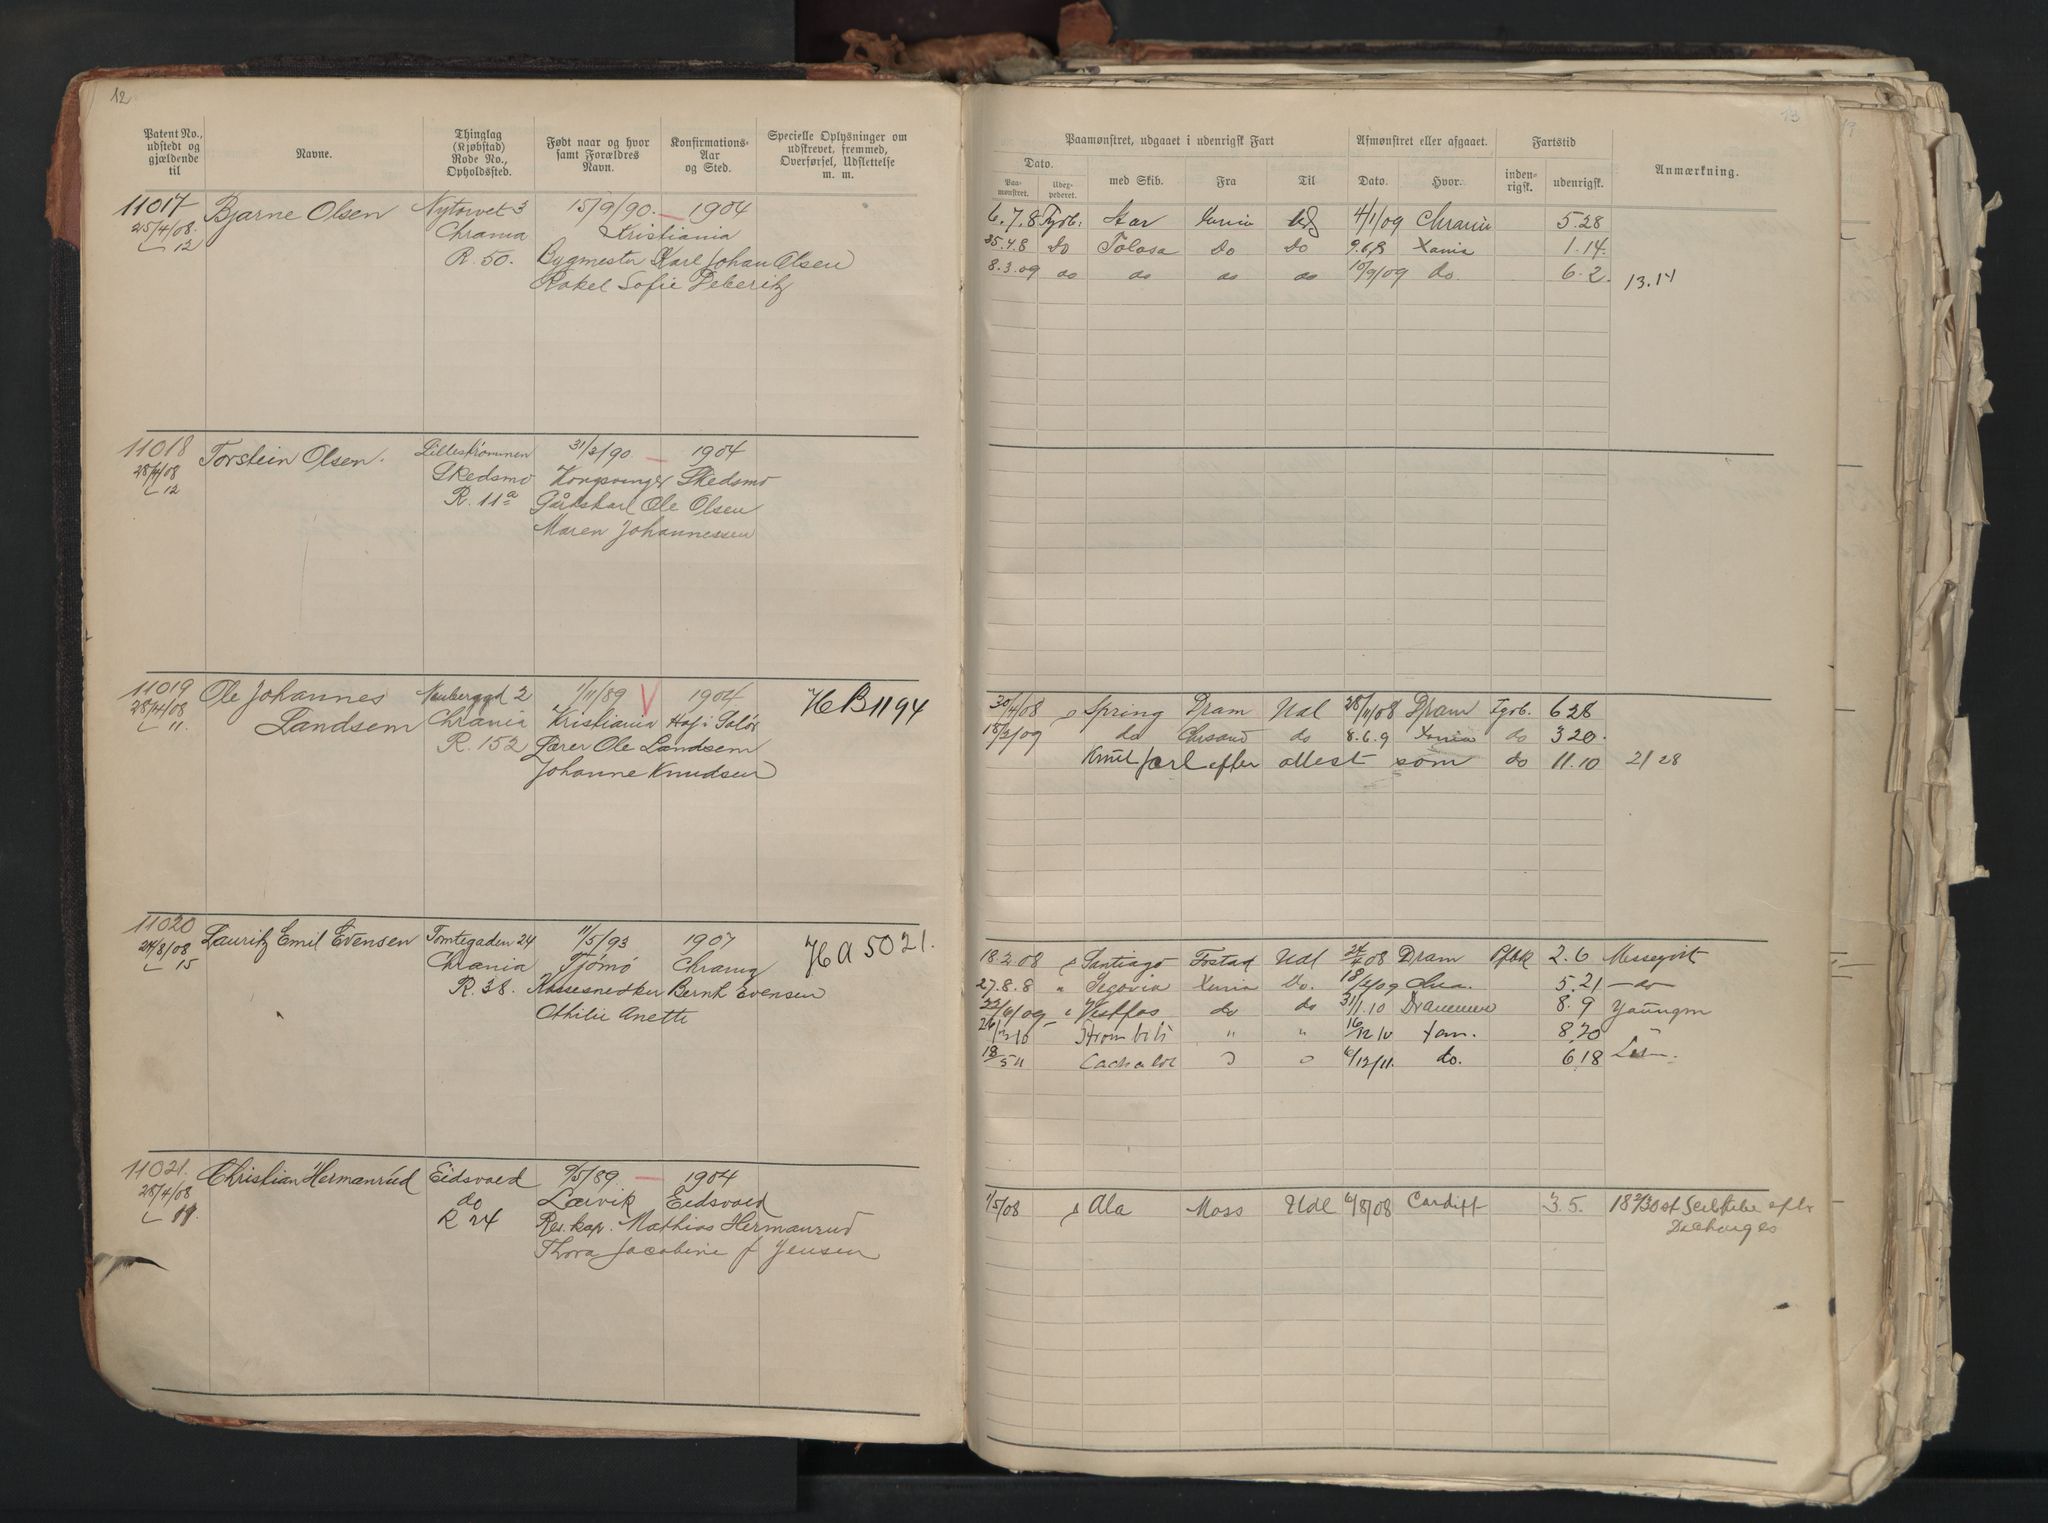 12
Patent No., udstedt og gjældende til
Navne.
Thinglag (Kjøbstad) Rode No., Opholdssted.
Født naar og hvor samt Forældres Navn.
Konfirmations-Aar og Sted.
Specielle Oplysninger om udskrevet, fremmed, Overførsel, Udslettelse m. m.
11017 Bjarne Olsen Nytorvet 3 15/9/90. — 1904
25/4/08. Chrania Kristiania
12 R. 50. Bygmester Karl Johan Olsen
Rakel Sofie
11018 Torstein Olsen. Lillestrømmen 31/2/90. — 1904
28/4/08 Skedsmo Kongsvinger Skedsmo
12 R. 11a Gårdskarl Ole Olsen
Maren Johannessen
11019 Ole Johannes Neuberggd 2 1/11/89 V 1904 HB1194
28/4/08 Landsem Chrania Kristiania Hof i Solør
11. R. 152 Ole Landsem
Johanne Knudsen
11020 Lauritz Emil Evensen Tomtegaden 24 11/5/93 1907 HA 5021.
27/8/08 Chrania Tjømø Chrania
15 R. 38. Kassesnedker Bernh Evensen
Othilie Anette
11021. Christian Hermanrud Eidsvold 9/5/89. — 1904
28/4/08 do Larvik Eidsvold
11. R 24 Mathias Hermanrud
Thora Jacobine f Jensen
13
Paamønstret, udgaaet i udenrigsk Fart
Afmønstret eller afgaaet.
Fartstid
Anmærkning.
Dato.
Paa-mønstret.
Udex-pederet.
med Skib.
Fra
Til
Dato.
Hvor.
inden-rigsk.
udenrigsk.
6.7.8 Fyrb: 4/1/09 Chrania 5.28
25.4.8 Do Tolosa Do Do 9.6.8 Xania 1.14.
8.3.09 do do do do 10/9/09 do. 6.2. 13.14
30/4/08 s Spring Dram Udl 28/11/08 Dram Fyrb. 6 28
18/2/09 do Chrsand do 8.6.9 Xania do 3 20.
Knut Jarl efter attest som do 11.10 21 28
18.2.08 s Santiago Udl 24/4 08 Dram 2.6
27.8.8 " Segovia Xania Do. 18/2/09 5.21 — do —
22/6/09 " Vestfos do do 31/1.10 Drammen 8.9 Youngm
26/3 10 Stromboli " " 16/12 10 Xan. 8.20
18/5 11 Cachalot 6/12/11. do. 6.18
1/5/08 s Ala Moss Udl 6/8/08 Cardiff 3.5.